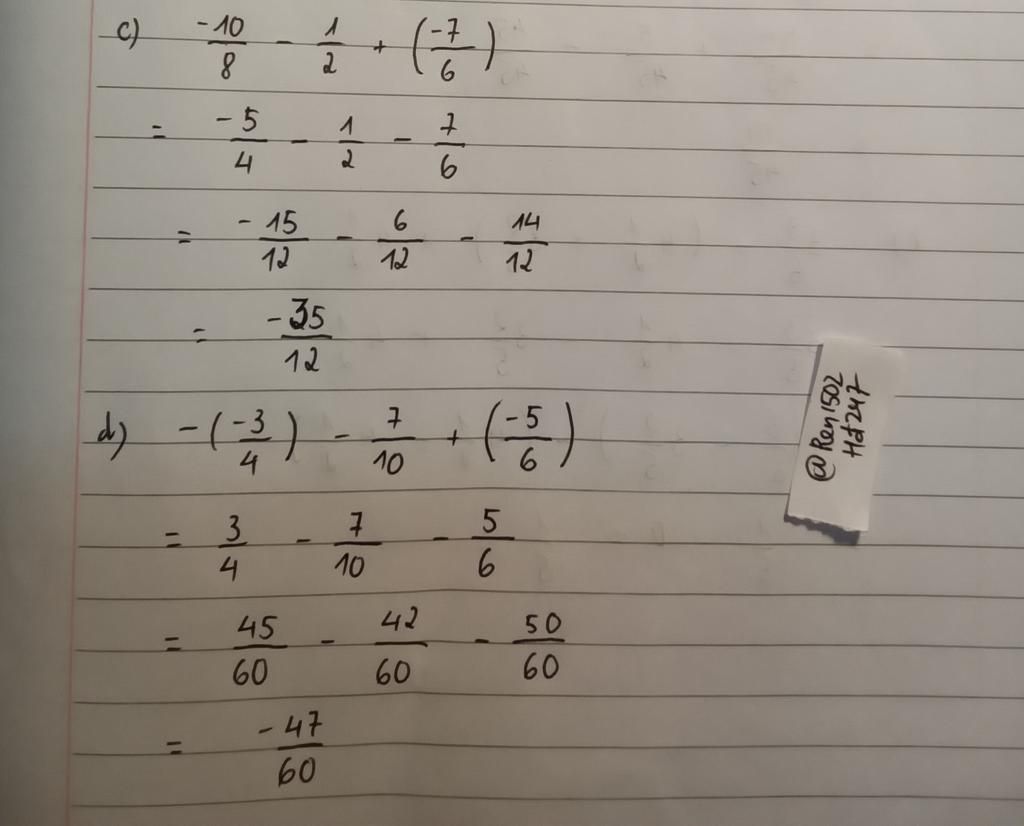 c) -10/8 - 1/2 + (-7/6)
= -5/4 - 1/2 - 7/6
= -15/12 - 6/12 - 14/12
= -35/12
d) -(-3/4) - 7/10 + (-5/6)
= 3/4 - 7/10 - 5/6
= 45/60 - 42/60 - 50/60
= -47/60
@Ren1502
Hd247